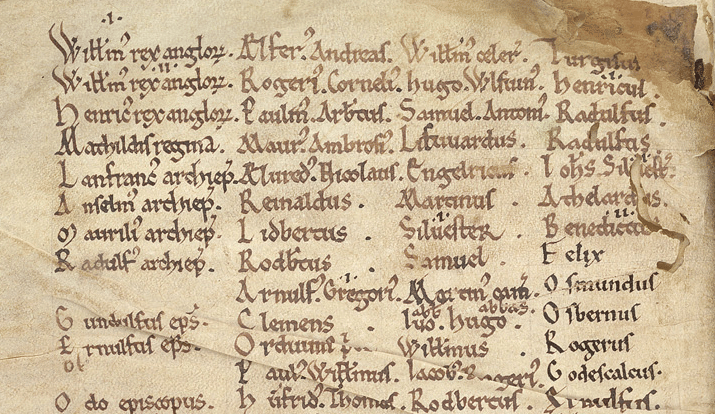 .I.
Willm̄ rex anglorꝝ. Ælfer. Andreas. Willm̄ celer. Turgisus
.II.
Willm̄ rex anglorꝝ. Rogerꝰ. Corneliꝰ. hugo. Wlfuinꝰ. henricus.
henricꝰ rex anglorꝝ. Paulinꝰ. Arb̄tus. Samuel. Antoniꝰ. Radulfus.
Mathildis regina. Maurꝰ. Ambrosiꝰ. Liduuardus. Radulfus.
Lanfrancꝰ archiep̄. Æluredꝰ. Nicolaus. Engelricus. Ioħs.
Anselmꝰ archiep̄. Reinaldus. Martinus. Athelardus.
Mauriliꝰ archiep̄. Lidbertus. Siluester. Benedictus
Radulfꝰ archiep̄. Rodb̄tus Samuel. Felix
.I.
Arnulfꝰ. Gregoriꝰ. Martinꝰ Osmundus
abb abbas.
Gundulfus ep̄s. Clemens. Iuo. hugo. Osbernus
Ernulfus ep̄s. Orduuinꝰ Willmus Rogerus
Paulꝰ. Willmus. Iacob. Rogerꝰ. Godescalcus.
Odo episcopus. hufridꝰ. Thomas. Rodbertus. Arnulfus.